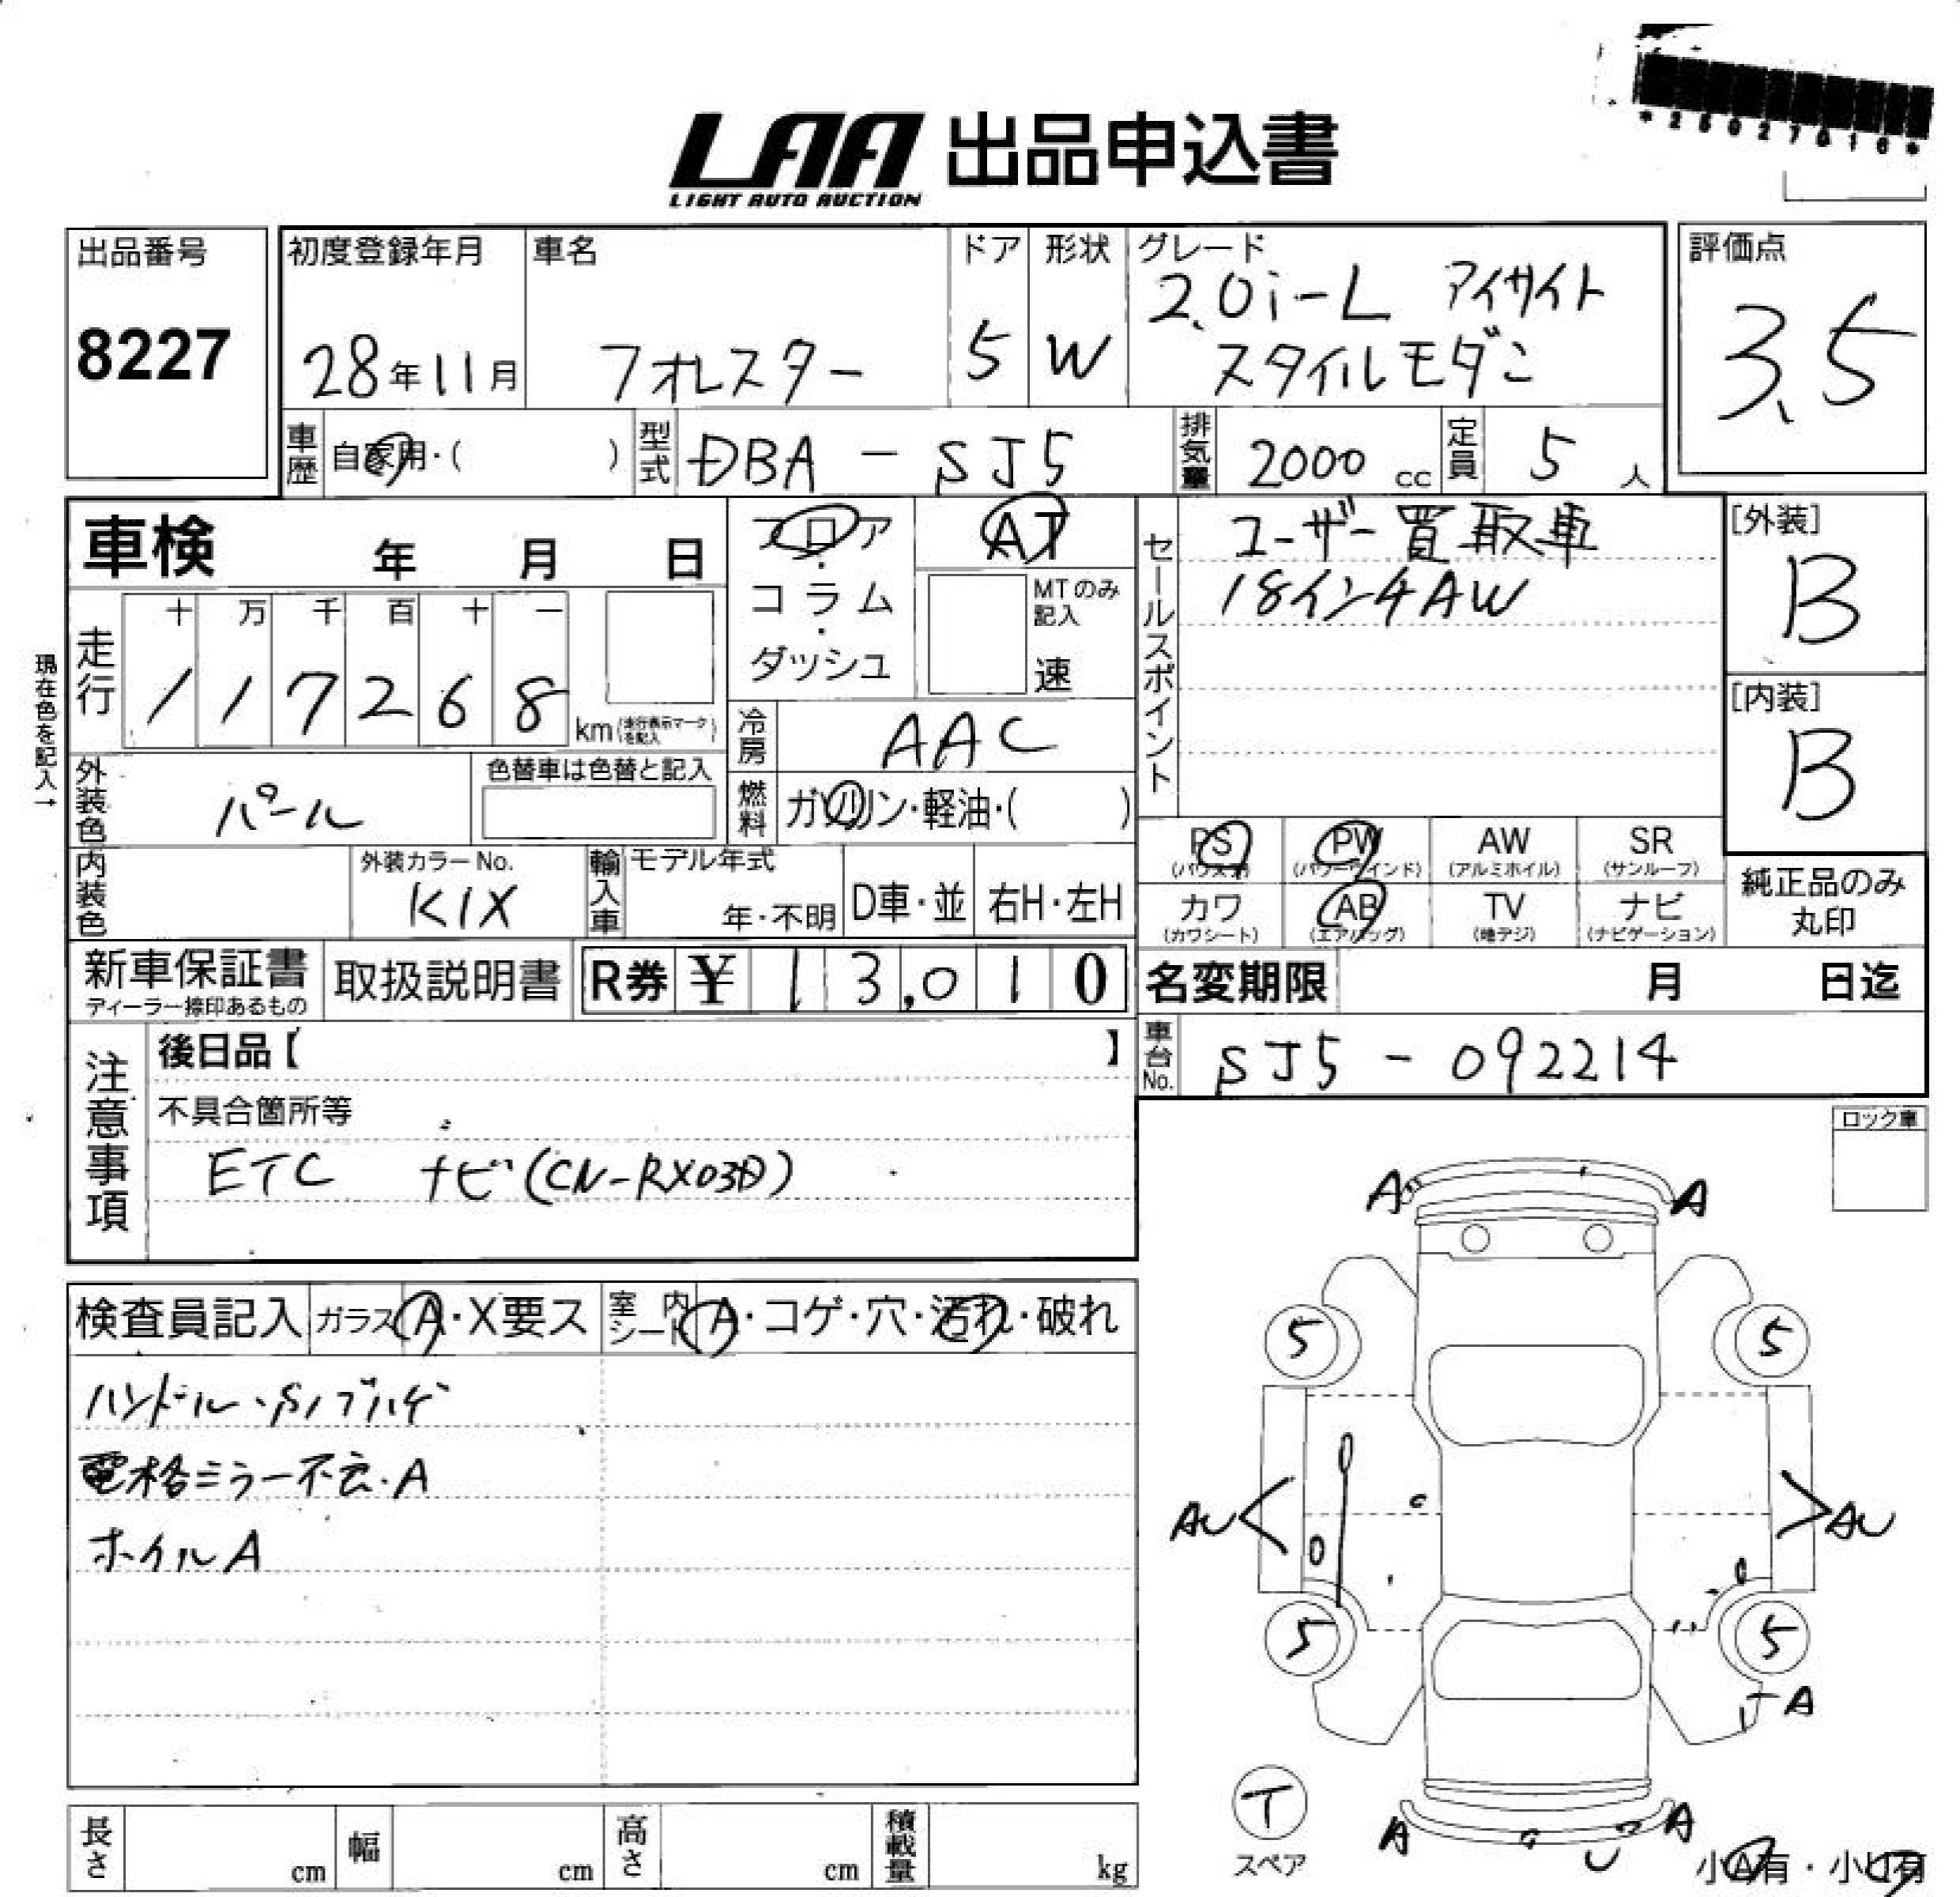 LAA 出品申込書
LIGHT AUTO AUCTION
出品番号
8227
初度登録年月
28年11月
車名
フォレスター
ドア
5
形状
W
グレード
2.0i-L アイサイト
スタイルモダン
評価点
3.5
車歴
自家用・( )
型式
DBA - SJ5
排気量
2000 cc
定員
5 人
車検 年 月 日
フロア・コラム・ダッシュ
AT
MTのみ記入
速
セールスポイント
ユーザー買取車
18インチAW
[外装]
B
[内装]
B
現在色を記入→
走行
十 万 千 百 十 一
1 1 7 2 6 8 km
(走行表示マークを記入)
冷房
AAC
外装色
パール
色替車は色替と記入
燃料
ガソリン・軽油・( )
PS (パワステ)
PW (パワーウインド)
AW (アルミホイル)
SR (サンルーフ)
カワ (カワシート)
AB (エアバッグ)
TV (地デジ)
ナビ (ナビゲーション)
純正品のみ
丸印
内装色
外装カラーNo.
K1X
輸入車
モデル年式
年・不明
D車・並
右H・左H
新車保証書
ディーラー捺印あるもの
取扱説明書
R券 ¥ 13,010
名変期限 月 日迄
車台No.
SJ5 - 092214
注意事項
後日品【 】
不具合箇所等
ETC ナビ(CN-RX03D)
ロック車
検査員記入
ガラス A・X要ス
室内シート A・コゲ・穴・汚れ・破れ
電格ミラー不良・A
ホイルA
A A
5 5
AU AU
5 5
A
T
スペア
A U A
小A有・小U有
長さ cm
幅 cm
高さ cm
積載量 kg